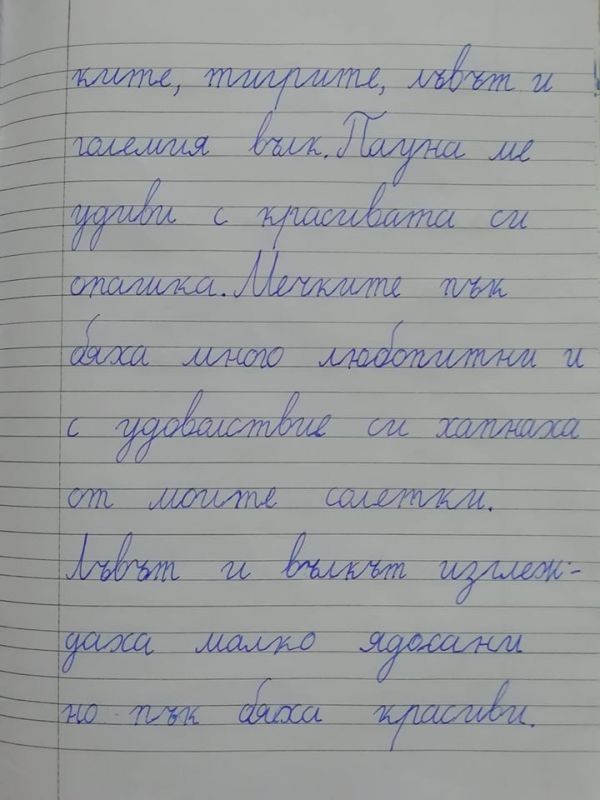 ките, тигрите, лъвът и
големия вълк. Пауна ме
удиви с красивата си
опашка. Мечките пък
бяха много любопитни и
с удоволствие си хапнаха
от моите солетки.
Лъвът и вълкът изглеж-
даха малко ядосани
но пък бяха красиви.